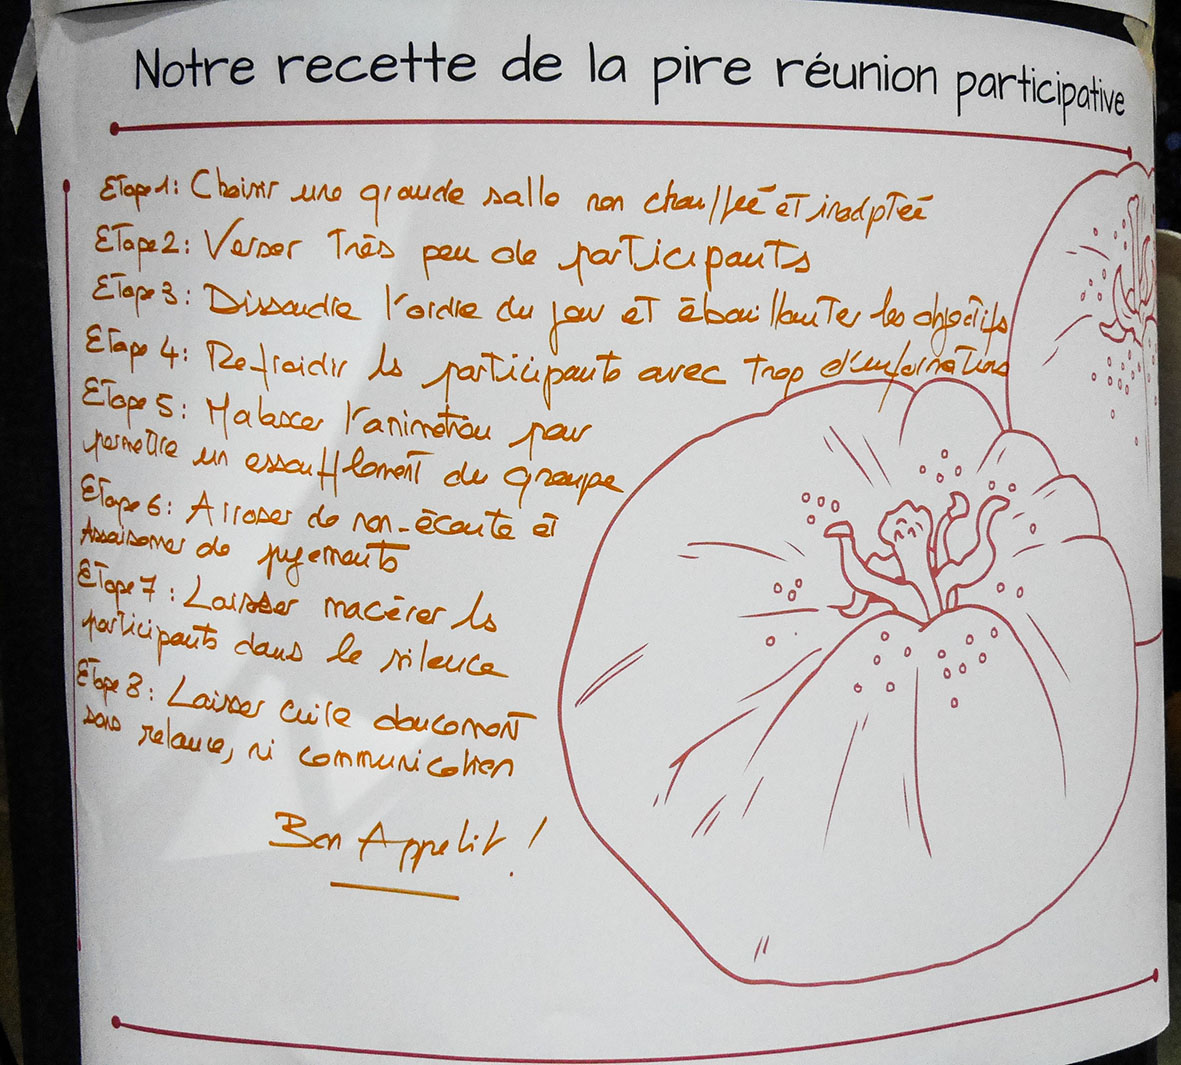 Notre recette de la pire réunion participative
Etape 1: Choisir une grande salle non chauffée et inadptée
Etape 2: Verser Très peu de participants
Etape 3: Dissoudre l'ordre du jour et ébouillanter les objectifs
Etape 4: Refroidir les participants avec trop d'informations
Etape 5: Malaxer l'animation pour
permettre un essoufflement du groupe
Etape 6: Arroser de non-écoute et
Assaisonner de jugements
Etape 7: Laisser macérer les
participants dans le silence
Etape 8: Laisser cuire doucement
sans relance, ni communication
Bon Appetit !